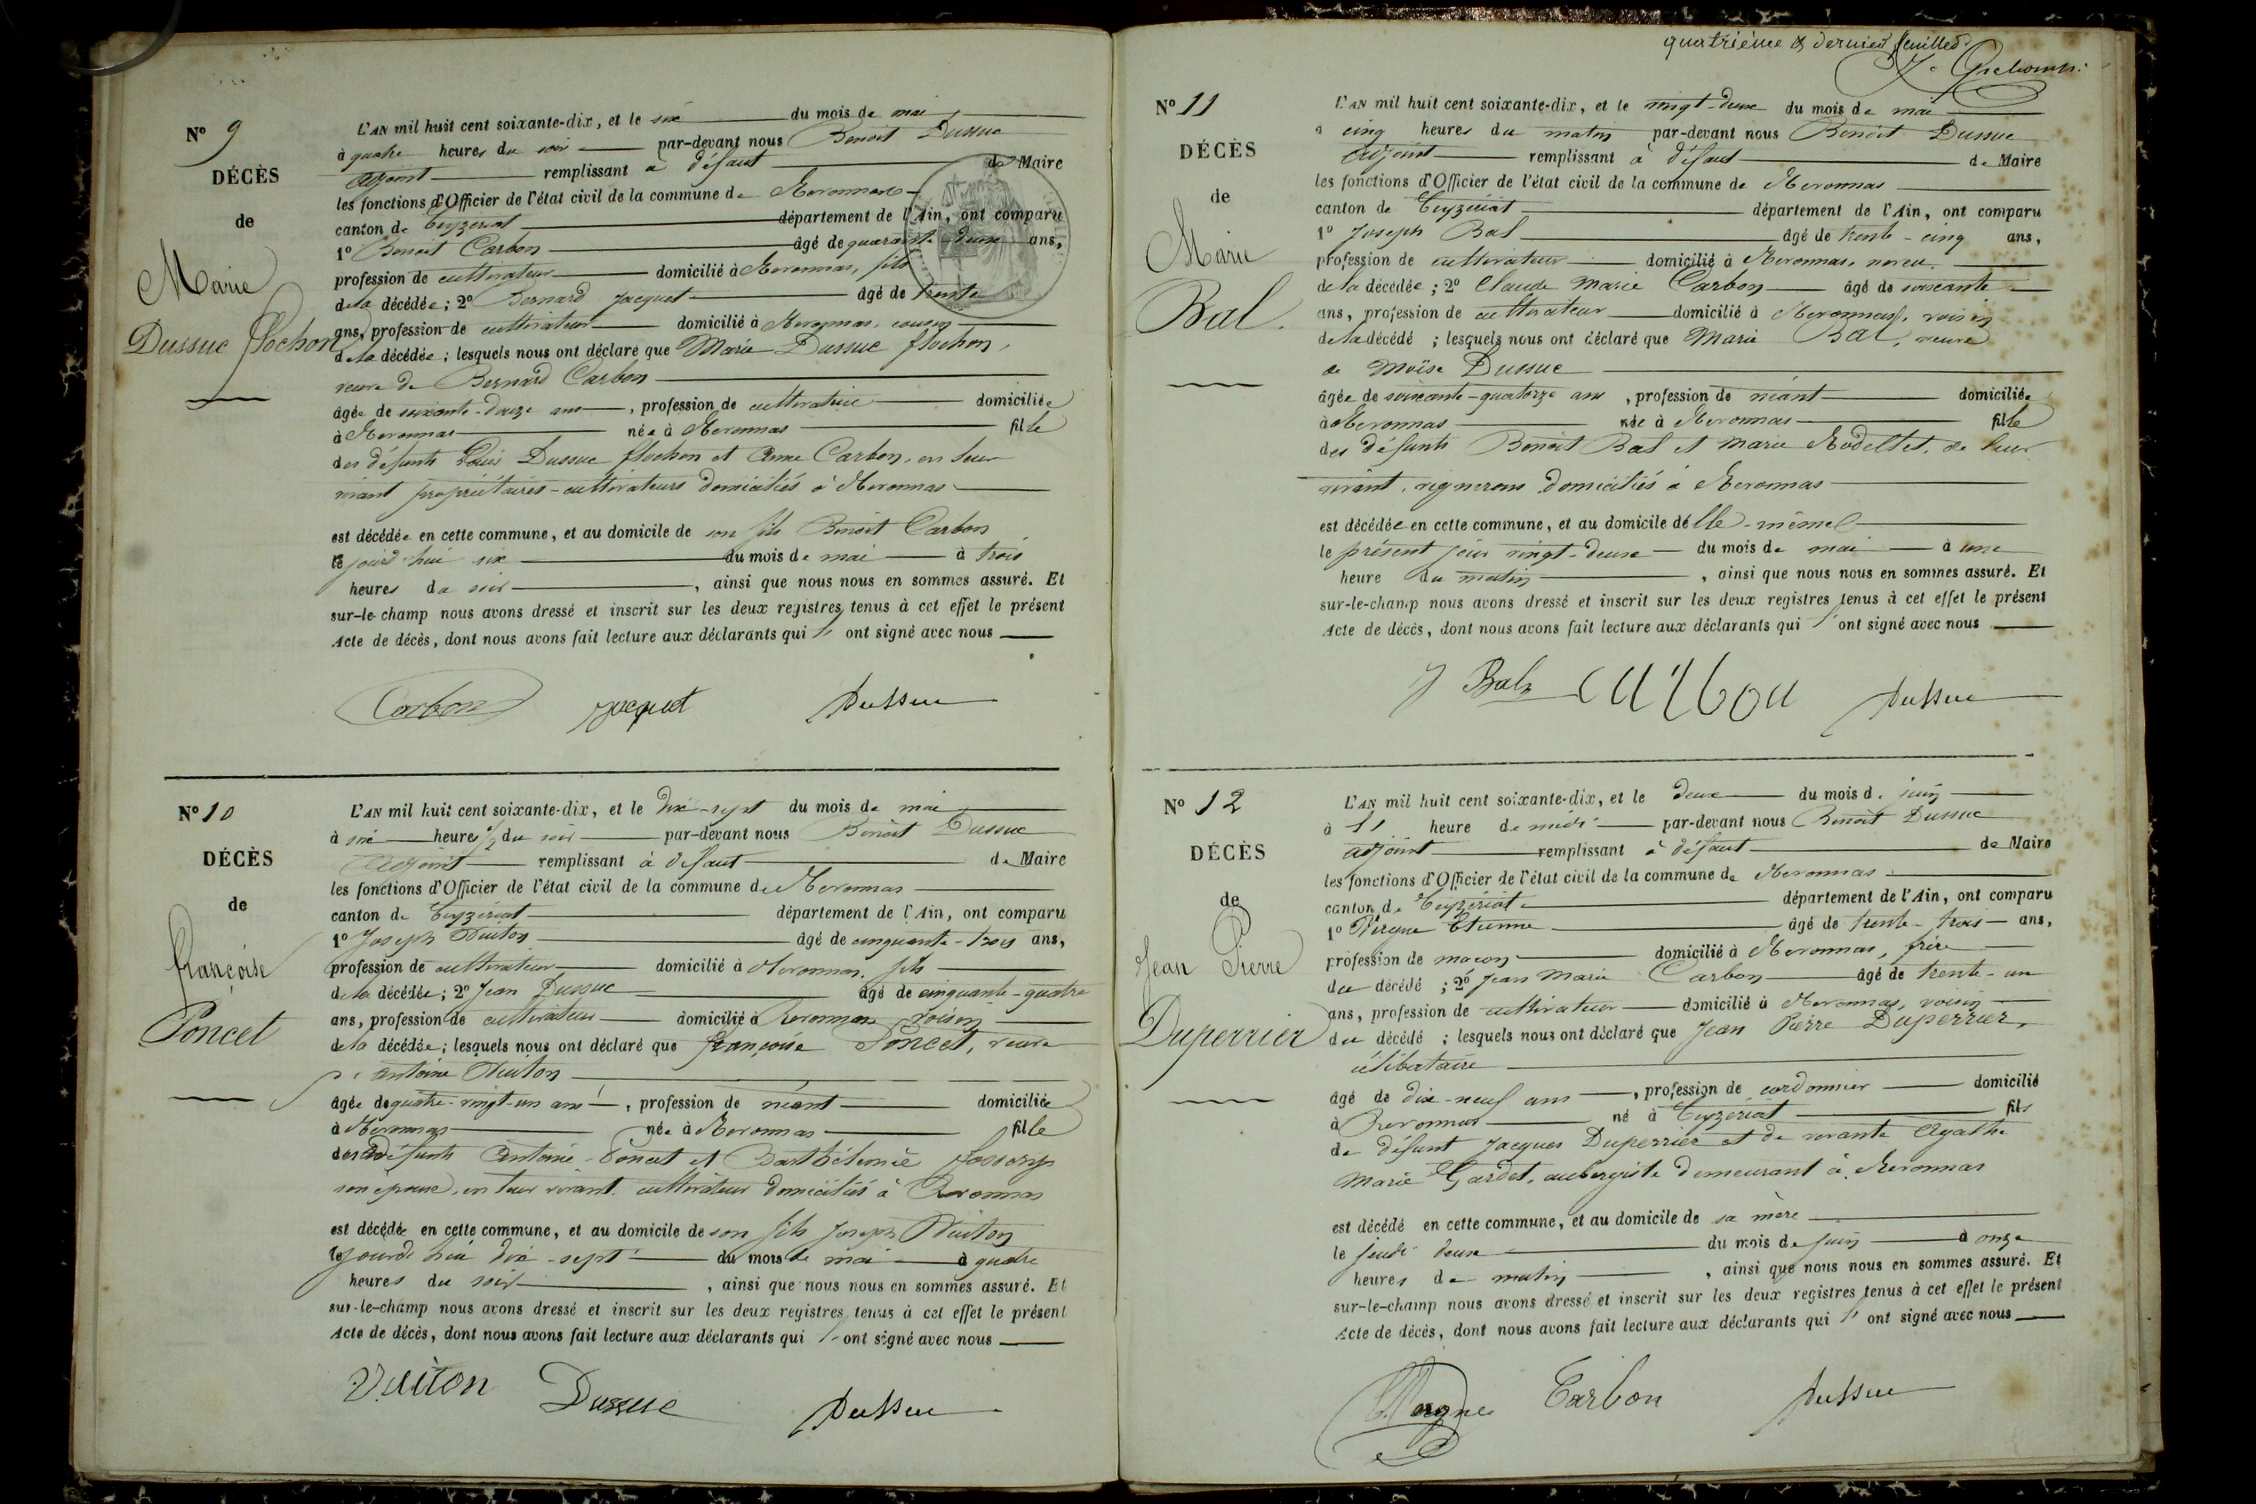 Nº 9
DÉCÈS
de
Marie
Dussuc flochon
L'AN mil huit cent soixante-dix, et le six du mois de mai
à quatre heures du soir par-devant nous Benoit Dussuc
adjoint remplissant à défaut de Maire
les fonctions d'Officier de l'état civil de la commune de Revonnas
canton de Ceyzeriat département de l'Ain, ont comparu
1º Benoit Carbon âgé de quarante-deux ans,
profession de cultivateur domicilié à Revonnas, fils
de la décédée; 2º Bernard Jacquet âgé de trente
ans, profession de cultivateur domicilié à Revonnas, cousin
de la décédée; lesquels nous ont déclaré que Marie Dussuc flochon,
veuve de Bernard Carbon
âgée de soixante-douze ans, profession de cultivatrice domiciliée
à Revonnas née à Revonnas fille
des défunts Louis Dussuc flochon et Anne Carbon, en leur
vivant propriétaires-cultivateurs domiciliés à Revonnas
est décédée en cette commune, et au domicile de son fils Benoit Carbon
le jourd'hui six du mois de mai à trois
heures du soir, ainsi que nous nous en sommes assuré. Et
sur-le-champ nous avons dressé et inscrit sur les deux registres tenus à cet effet le présent
Acte de décès, dont nous avons fait lecture aux déclarants qui ont signé avec nous
Carbon Jacquet Dussuc
Nº 10
DÉCÈS
de
françoise
Poncet
L'AN mil huit cent soixante-dix, et le dix-sept du mois de mai
à six heures 1/2 du soir par-devant nous Benoit Dussuc
adjoint remplissant à défaut de Maire
les fonctions d'Officier de l'état civil de la commune de Revonnas
canton de Ceyzériat département de l'Ain, ont comparu
1º Joseph Vuiton âgé de cinquante-trois ans,
profession de cultivateur domicilié à Revonnas, fils
de la décédée; 2º Jean Dussuc âgé de cinquante-quatre
ans, profession de cultivateur domicilié à Revonnas voisin
de la décédée; lesquels nous ont déclaré que françoise Poncet, veuve
de Antoine Vuiton
âgée de quatre-vingt-un ans, profession de néant domiciliée
à Revonnas née à Revonnas fille
des défunts Antoine Poncet et Barthélemie
son épouse, en leur vivant cultivateur domiciliés à Revonnas
est décédée en cette commune, et au domicile de son fils Joseph Vuiton
le jourd'hui dix-sept du mois de mai à quatre
heures du soir, ainsi que nous nous en sommes assuré. Et
sur-le-champ nous avons dressé et inscrit sur les deux registres tenus à cet effet le présent
Acte de décès, dont nous avons fait lecture aux déclarants qui ont signé avec nous
Vuiton Dussuc Dussuc
quatrième & dernier feuillet
Nº 11
DÉCÈS
de
Marie
Bal.
L'AN mil huit cent soixante-dix, et le vingt-deux du mois de mai
à cinq heures du matin par-devant nous Benoit Dussuc
adjoint remplissant à défaut de Maire
les fonctions d'Officier de l'état civil de la commune de Revonnas
canton de Ceyzériat département de l'Ain, ont comparu
1º Joseph Bal âgé de trente-cinq ans,
profession de cultivateur domicilié à Revonnas, neveu
de la décédée; 2º Claude Marie Carbon âgé de soixante
ans, profession de cultivateur domicilié à Revonnas, voisin
de la décédé; lesquels nous ont déclaré que Marie Bal, veuve
de Moïse Dussuc
âgée de soixante-quatorze ans, profession de néant domiciliée
à Revonnas née à Revonnas fille
des défunts Benoit Bal et Marie Rodettet, de leur
vivant, vignerons domiciliés à Revonnas
est décédée en cette commune, et au domicile d'elle-même
le présent jour vingt-deux du mois de mai à une
heure du matin, ainsi que nous nous en sommes assuré. Et
sur-le-champ nous avons dressé et inscrit sur les deux registres tenus à cet effet le présent
Acte de décès, dont nous avons fait lecture aux déclarants qui ont signé avec nous
J Bal Carbon Dussuc
Nº 12
DÉCÈS
de
Jean Pierre
Duperrier
L'AN mil huit cent soixante-dix, et le deux du mois d. juin
à heure de midi par-devant nous Benoit Dussuc
adjoint remplissant à défaut de Maire
les fonctions d'Officier de l'état civil de la commune de Revonnas
canton de Ceyzériat département de l'Ain, ont comparu
1º Etienne âgé de trente-trois ans,
profession de maçon domicilié à Revonnas, frère
du décédé; 2º Jean Marie Carbon âgé de trente-un
ans, profession de cultivateur domicilié à Revonnas, voisin
du décédé; lesquels nous ont déclaré que Jean Pierre Duperrier,
célibataire
âgé de dix-neuf ans, profession de cordonnier domicilié
à Revonnas né à Ceyzeriat fils
de défunt Jacques Duperrier et de vivante Agathe
Marie Gardet, aubergiste demeurant à Revonnas
est décédé en cette commune, et au domicile de sa mère
le jeudi deux du mois de juin à onze
heures de matin, ainsi que nous nous en sommes assuré. Et
sur-le-champ nous avons dressé et inscrit sur les deux registres tenus à cet effet le présent
Acte de décès, dont nous avons fait lecture aux déclarants qui ont signé avec nous
Carbon Dussuc